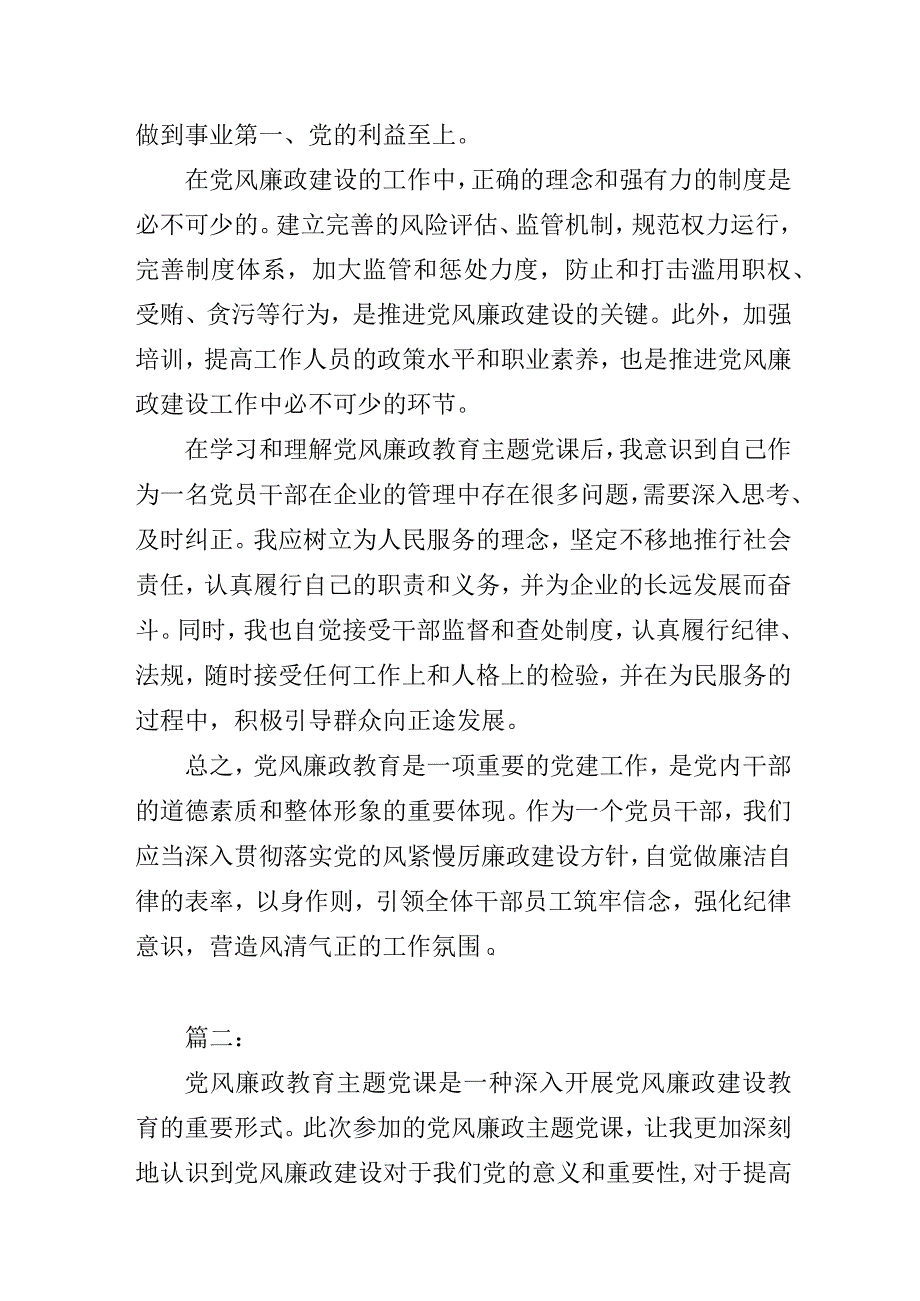 做到事业第一、党的利益至上。
在党风廉政建设的工作中，正确的理念和强有力的制度是
必不可少的。建立完善的风险评估、监管机制，规范权力运行，
完善制度体系，加大监管和惩处力度，防止和打击滥用职权、
受贿、贪污等行为，是推进党风廉政建设的关键。此外，加强
培训，提高工作人员的政策水平和职业素养，也是推进党风廉
政建设工作中必不可少的环节。
在学习和理解党风廉政教育主题党课后，我意识到自己作
为一名党员干部在企业的管理中存在很多问题，需要深入思考、
及时纠正。我应树立为人民服务的理念，坚定不移地推行社会
责任，认真履行自己的职责和义务，并为企业的长远发展而奋
斗。同时，我也自觉接受干部监督和查处制度，认真履行纪律、
法规，随时接受任何工作上和人格上的检验，并在为民服务的
过程中，积极引导群众向正途发展。
总之，党风廉政教育是一项重要的党建工作，是党内干部
的道德素质和整体形象的重要体现。作为一个党员干部，我们
应当深入贯彻落实党的风紧慢厉廉政建设方针，自觉做廉洁自
律的表率，以身作则，引领全体干部员工筑牢信念，强化纪律
意识，营造风清气正的工作氛围。
篇二：
党风廉政教育主题党课是一种深入开展党风廉政建设教
育的重要形式。此次参加的党风廉政主题党课，让我更加深刻
地认识到党风廉政建设对于我们党的意义和重要性,对于提高